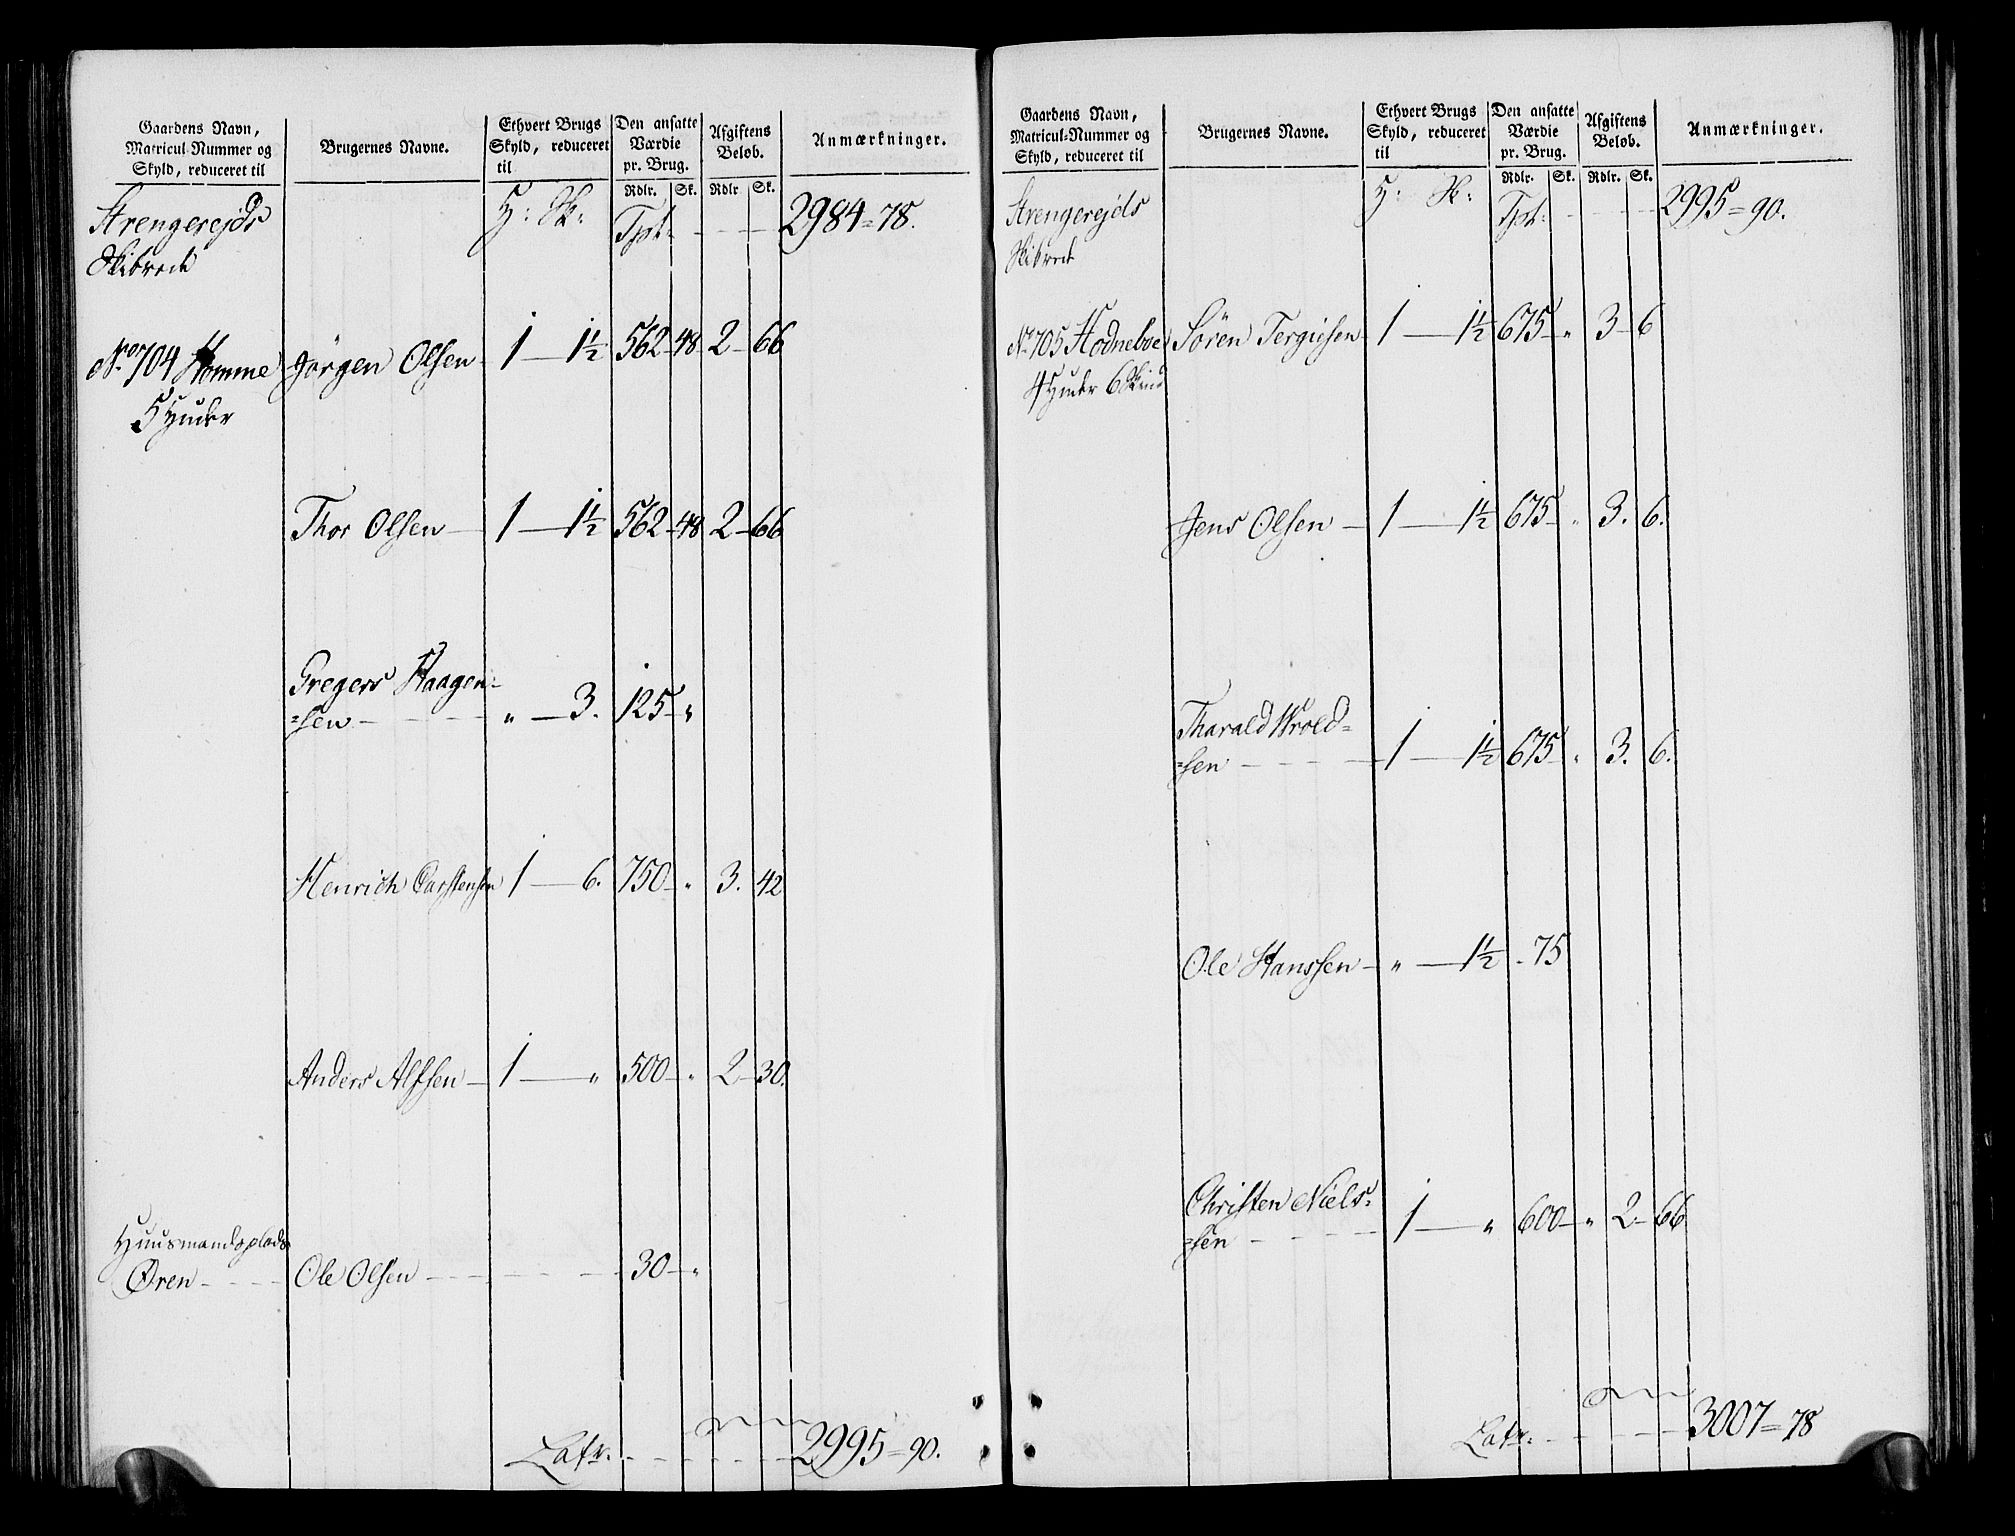 Gaardens Navn, Matricul-Nummer og Skyld, reduceret til | Brugernes Navne. | Ethvert Brugs Skyld, reduceret til | Den ansatte Værdie pr. Brug. | Afgiftens Beløb. | Anmærkninger.
Rdlr. Sk. Rdlr Sk.
Strengerejds H: Sk: Tpt. 2984=78.
Skibrede
No 704 Homme Jørgen Olsen 1 — 1½ 562 - 48 2 - 66
5 Huder
Thor Olsen — 1 — 1½ 562 - 48 2 - 66
Gregers Haagen-
=sen " — 3. 125 - "
Henrich Carstensen 1 — 6. 750 - " 3. 42
Anders Alfsen — 1 — " 500 - " 2 - 30.
Huusmandsplads
Øren Ole Olsen 30 - "
Latr. 2995=90.
Gaardens Navn, Matricul-Nummer og Skyld, reduceret til | Brugernes Navne. | Ethvert Brugs Skyld, reduceret til | Den ansatte Værdie pr. Brug. | Afgiftens Beløb. | Anmærkninger.
Rdlr. Sk. Rdlr. Sk.
Strengerejds H: Sk: Tpt. 2995=90.
Skibrede
No 705 Hodneboe Søren Tergiesen 1 — 1½ 675 - " 3 - 6
4 Huder 6 Skind
Jens Olsen — 1 — 1½ 675 - " 3. 6.
Tharald Wrold=
=sen 1 — 1½ 675 - " 3. 6.
Ole Hanssen — " — 1½ - 75
Christen Niels=
=sen 1 — " 600 - " 2 - 66
Latr. 3007=78